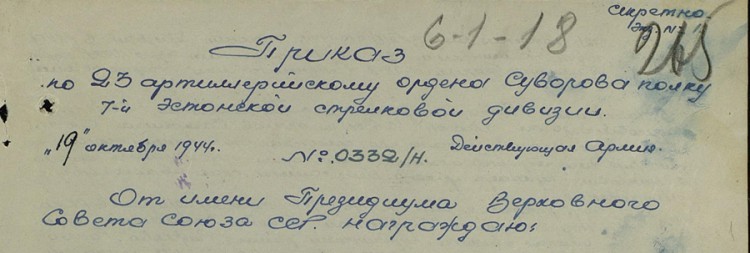 Секретно.
Экз. № 1
Приказ
6-1-18
265
по 23 артиллерийскому ордена Суворова полку
7-й Эстонской стрелковой дивизии.
"19" октября 1944г. №0332/н. Действующая Армия.
От имени Президиума Верховного
Совета Союза ССР. награждаю: